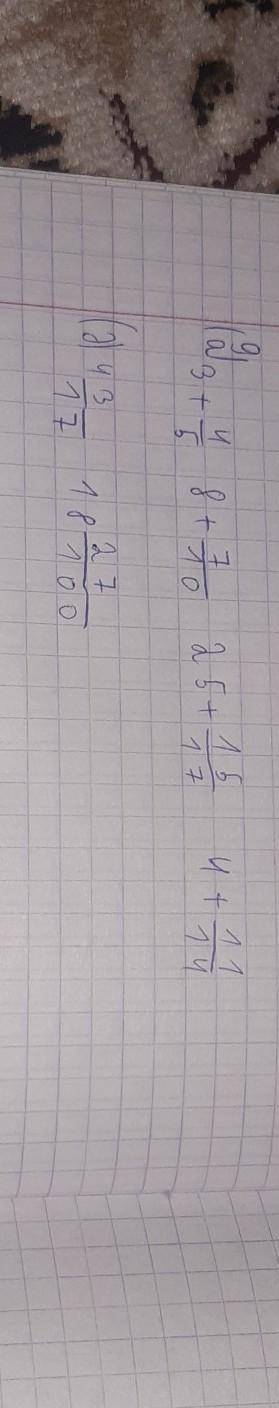 9
a) 3 + 4/5   8 + 7/10   25 + 15/17   4 + 11/14
a) 4 3/17   18 27/100